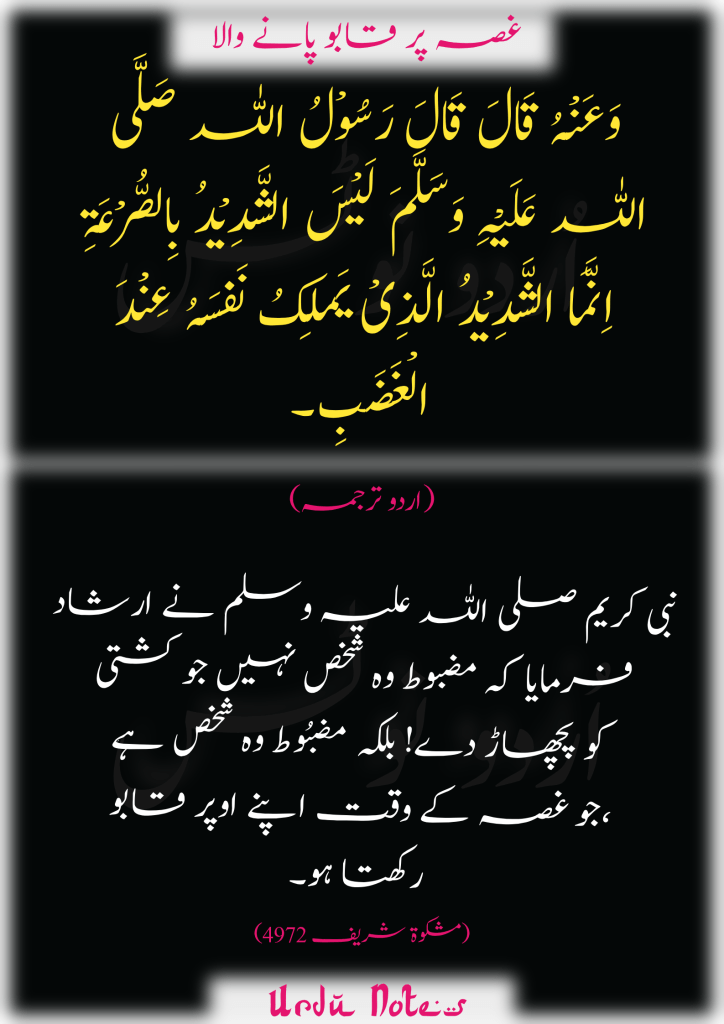 غصہ پر قابو پانے والا
وَعَنْهُ قَالَ قَالَ رَسُوْلُ اللہ صَلَّی
اللہُ عَلَیْہِ وَسَلَّمَ لَیْسَ الشَّدِیْدُ بِالصُّرْعَۃِ
اِنَّمَا الشَّدِیْدُ الَّذِیْ یَملِکُ نَفسَہُ عِنْدَ
الْغَضَبِ۔
(اردو ترجمہ)
نبی کریم صلی اللہ علیہ وسلم نے ارشاد
فرمایا کہ مضبوط وہ شخص نہیں جو کشتی
کو پچھاڑ دے! بلکہ مضبُوط وہ شخص ہے
،جو غصہ کے وقت اپنے اوپر قابو
رکھتا ہو۔
(مشکوۃ شریف 4972)
Urdu Notes